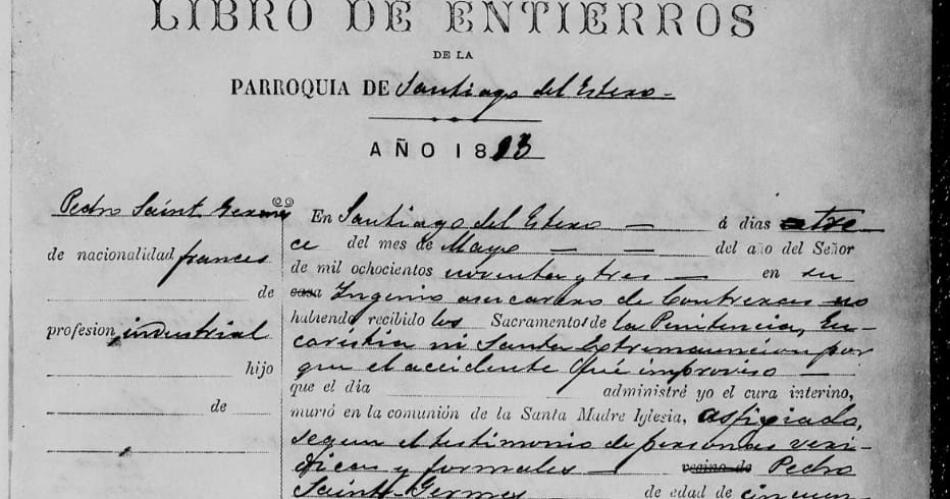 LIBRO DE ENTIERROS
DE LA
PARROQUIA DE Santiago del Estero
AÑO 1893
Pedro Saint Germes
de nacionalidad frances
de
profesion industrial
hijo
de
En Santiago del Estero — á dias tre
ce del mes de Mayo — — del año del Señor
de mil ochocientos noventa y tres — en su
casa Ingenio azucarero de Contreras no
habiendo recibido los Sacramentos de la Penitencia, Eu-
caristia ni Santa Extremauncion por
que el accidente fué improviso —
que el día administré yo el cura interino,
murió en la comunión de la Santa Madre Iglesia, asfixiado,
segun el testimonio de personas veri-
dicas y formales — vecino de Pedro
Saint Germes de edad de cincuen